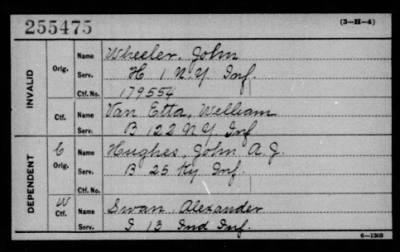 255475 (3-H-4)
INVALID
Orig. Name Wheeler, John
Serv. H 1 N.Y. Inf.
Ctf. No. 179554
Ctf. Name Van Etta, William
Serv. B 122 N.Y. Inf
DEPENDENT
C Orig. Name Hughes, John A. J.
Serv. B 25 Ky Inf.
Ctf. No.
W Ctf. Name Swan, Alexander
Serv. I 13 Ind Inf.